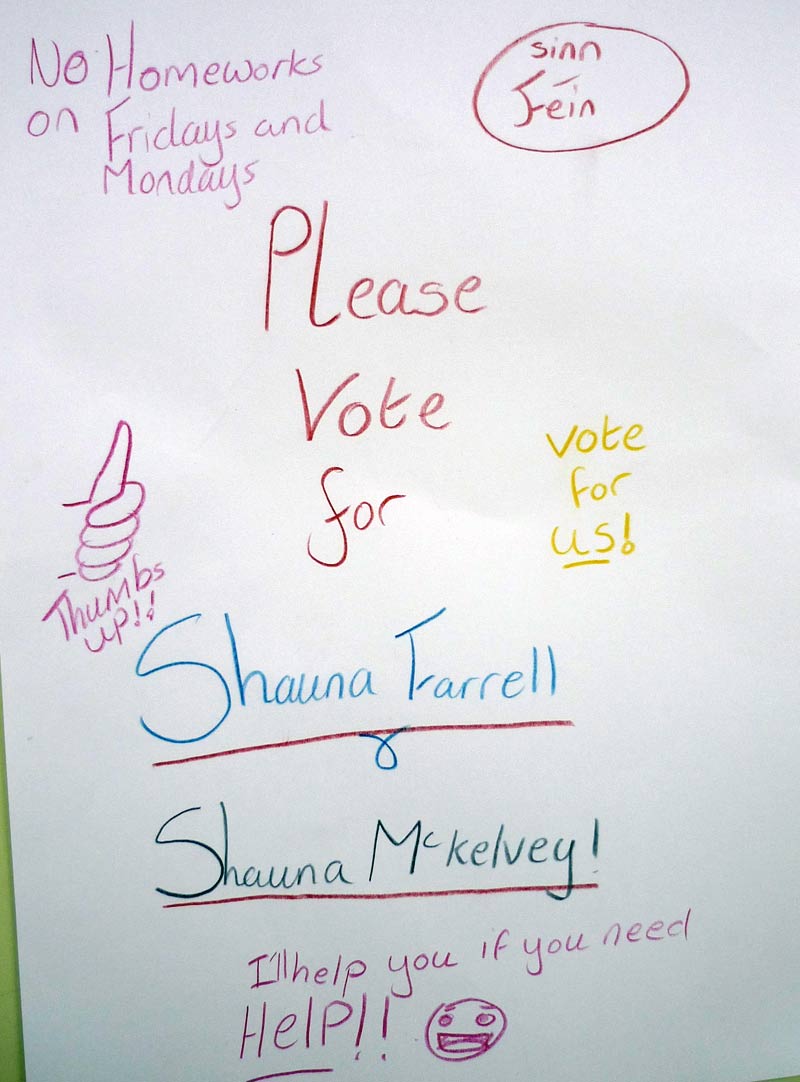 No Homeworks
on Fridays and
Mondays
sinn
Féin
Please
Vote
for
vote
for
us!
Thumbs
up!!
Shauna Farrell
&
Shauna McKelvey!
I'll help you if you need
HelP!!